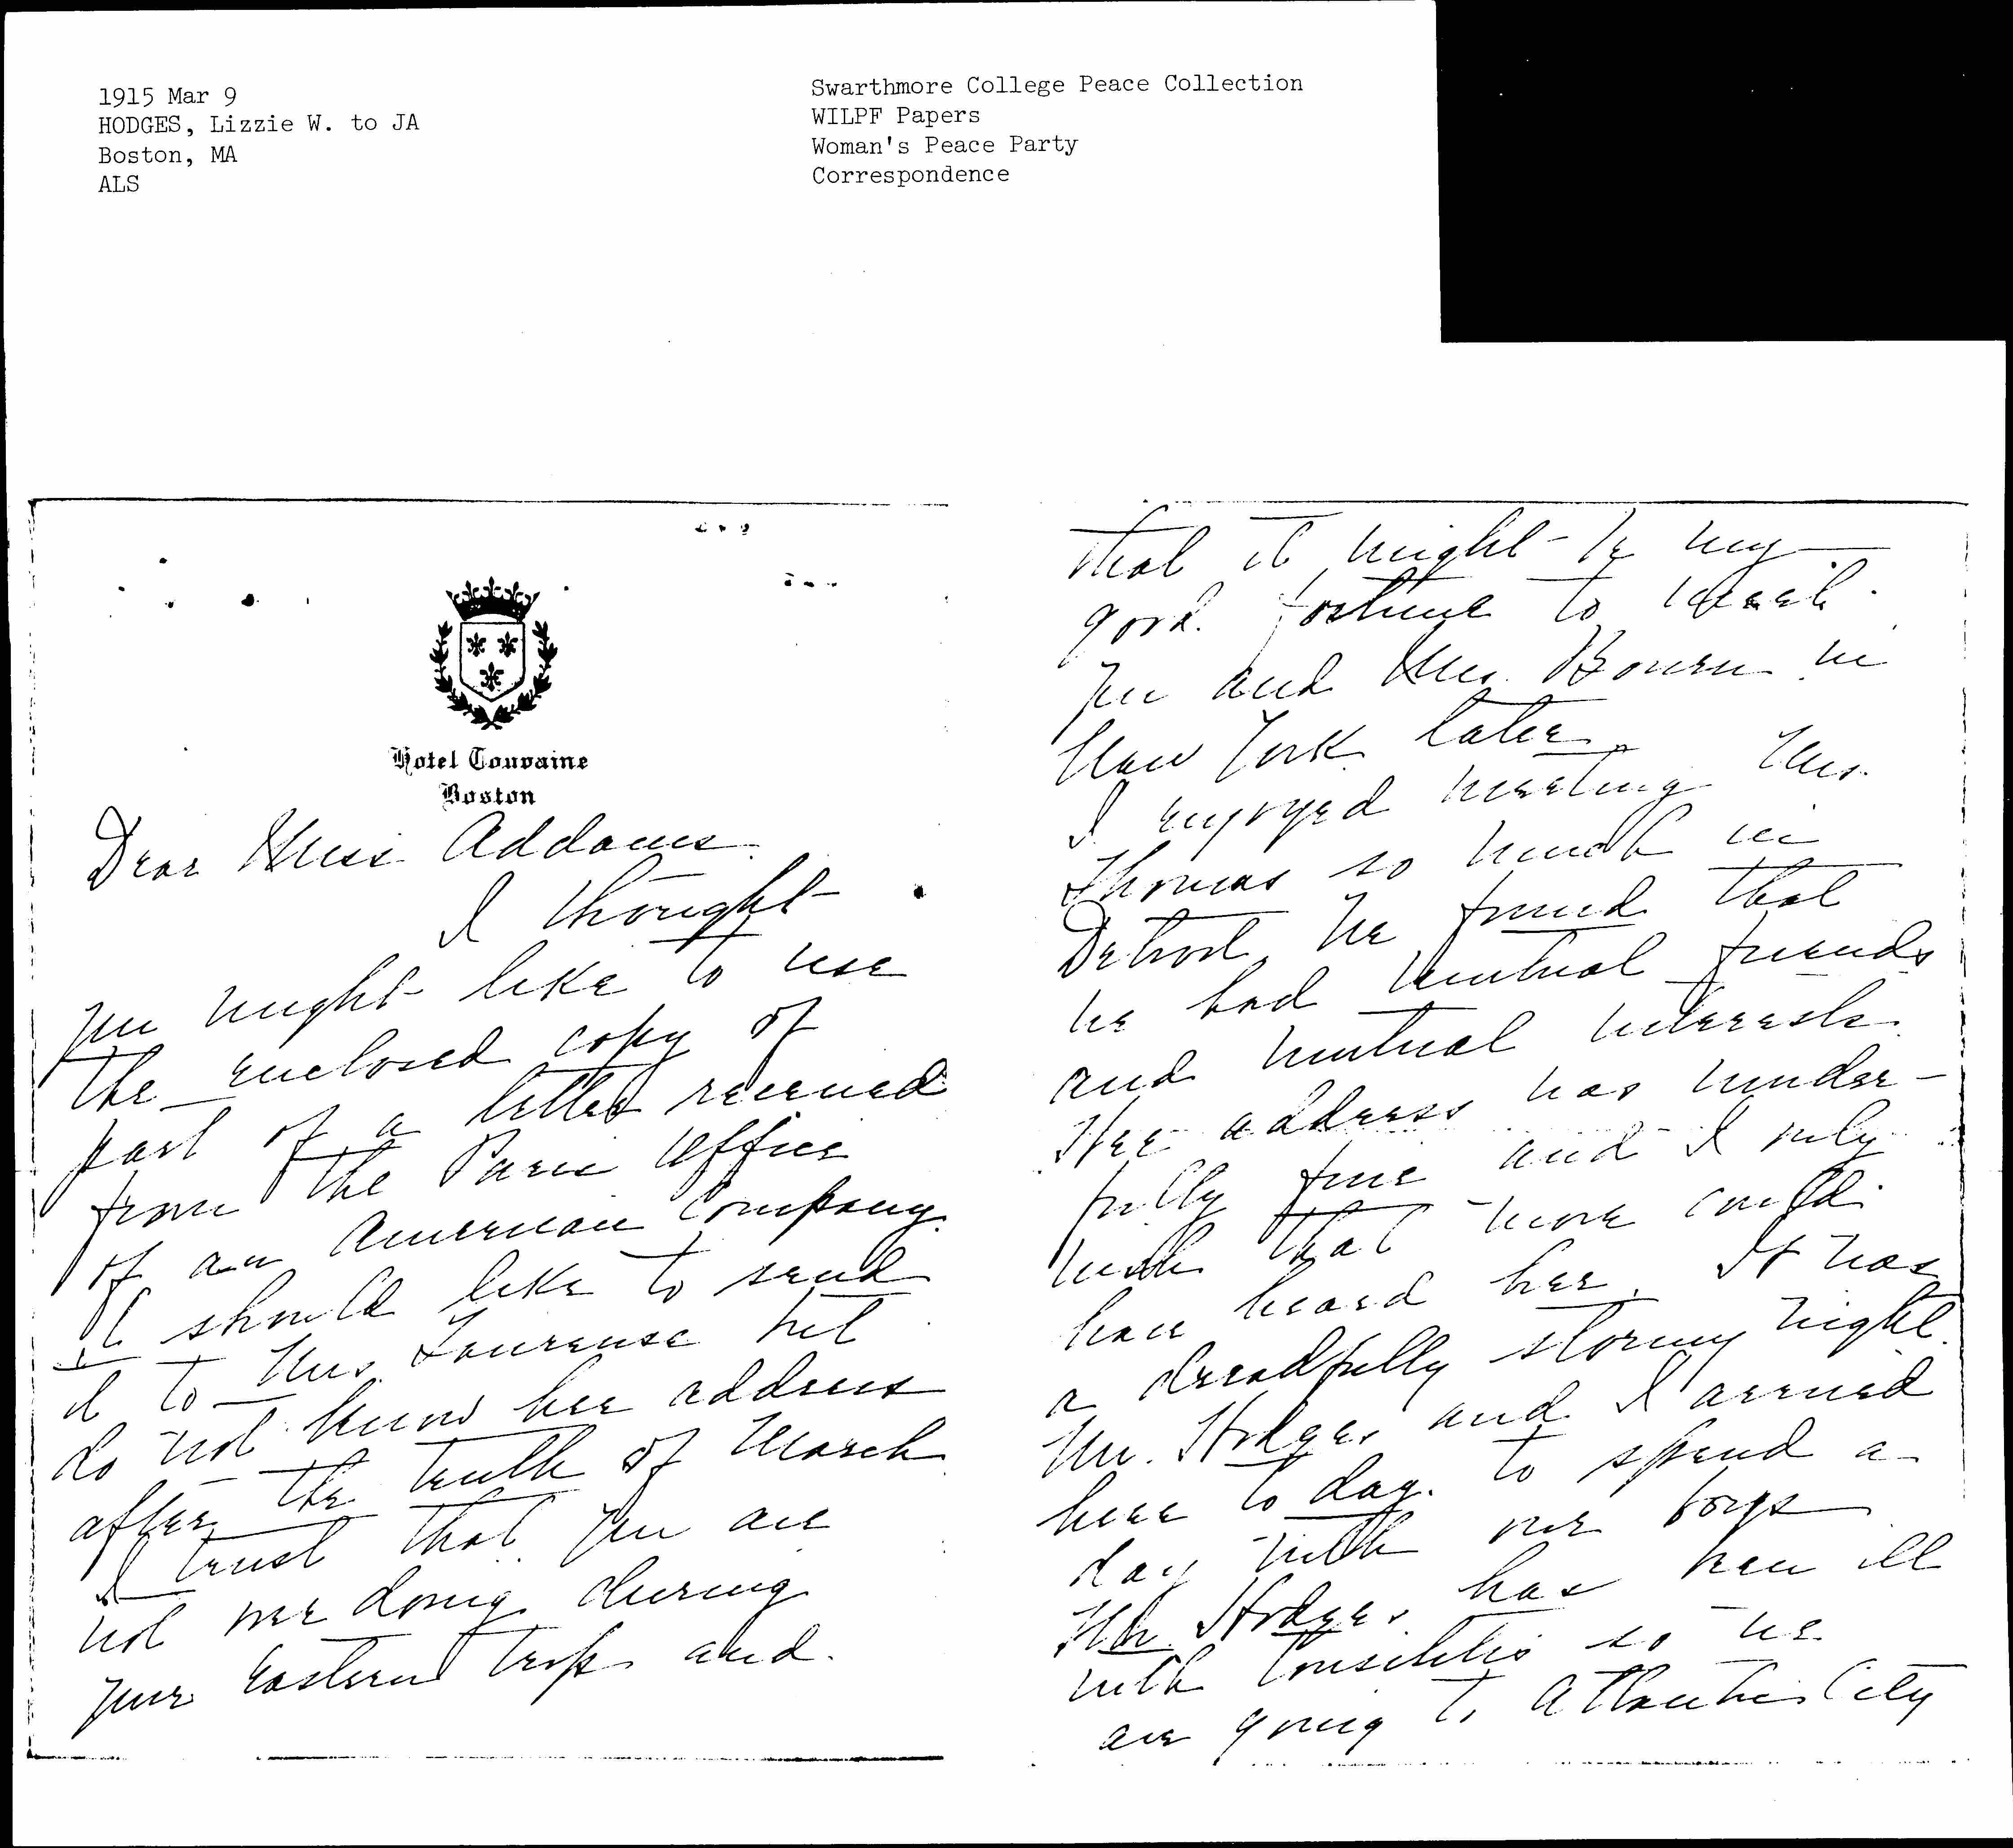 1915 Mar 9
HODGES, Lizzie W. to JA
Boston, MA
ALS
Swarthmore College Peace Collection
WILPF Papers
Woman's Peace Party
Correspondence
Hotel Touraine
Boston
Dear Miss Addams
I thought
you might like to use
the enclosed copy of
part of a letter received
from the Paris Office
of an American Company.
I should like to send
it to Mrs. Laurense but
do not know her address
after the tenth of March
I trust that you are
not over doing during
your Eastern trip and
that it might be my
good fortune to meet
you and Mrs. Bowen in
New York later.
I enjoyed meeting Mrs.
Thomas so much in
Detroit. We found that
we had mutual friends
and mutual interests.
Her address was wonder-
fully fine and I only
wish that more could
have heard her. It was
a dreadfully stormy night.
Mr. Hodges and I arrived
here to day. to spend a
day with our boys
Mr. Hodges has been ill
with tonsilitis so we
are going to Atlantic City